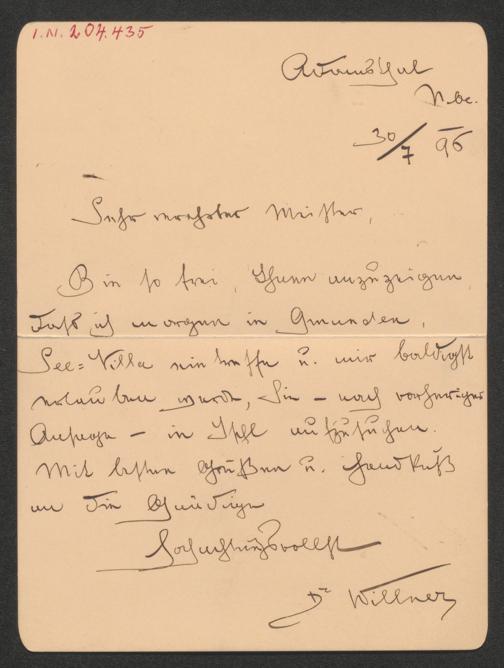 I.N. 204.435
Adamsthal
N.oe.
30/7 96
Sehr verehrter Meister,
Bin so frei, Ihnen anzuzeigen,
daß ich morgen in Gmunden,
See=Villa eintreffe u. mir baldigst
erlauben werde, Sie – nach vorheriger
Ansage – in Ischl aufzusuchen.
Mit besten Grüßen u. Handkuß
an die Gnädige
Hochachtungsvollst
Dr Willner